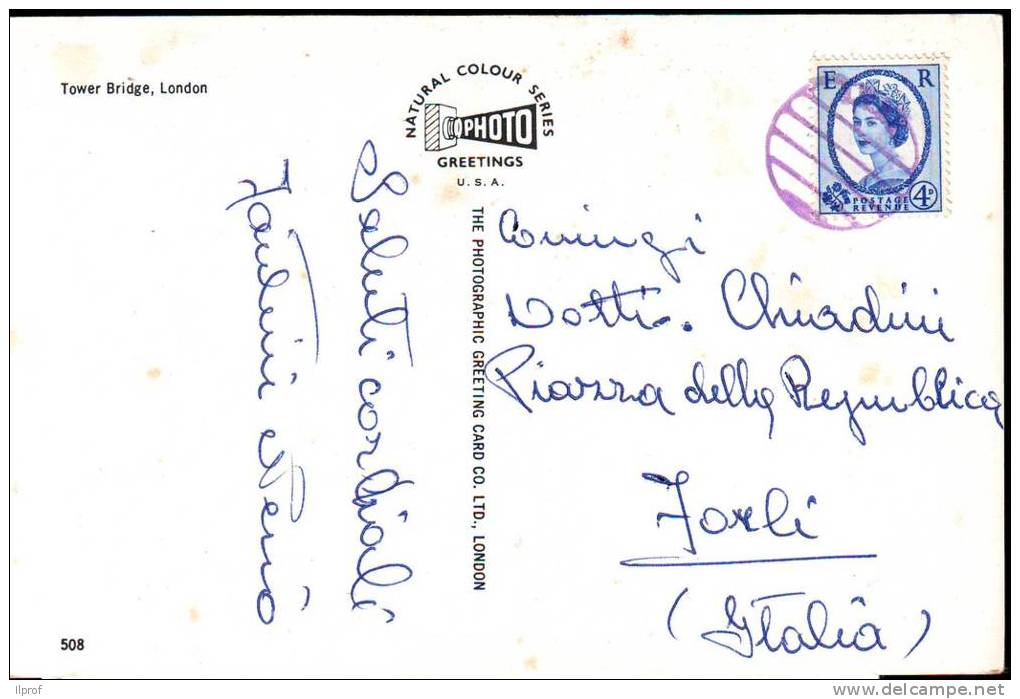 Tower Bridge, London
NATURAL COLOUR SERIES
PHOTO
GREETINGS
U.S.A.
E R
POSTAGE
REVENUE
4D
THE PHOTOGRAPHIC GREETING CARD CO. LTD., LONDON
Saluti cordiali
Coniugi
Dott. Chiadini
Piazza della Repubblica
Forlì
(Italia)
508
Ilprof
delcampe.net